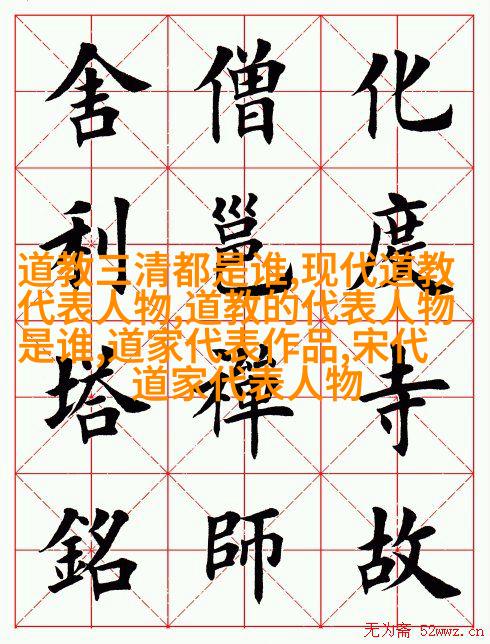 化度寺故
僧邕禪師
舍利塔銘
道教三清都是谁,现代道教
代表人物,道教的代表人物
是谁,道家代表作品,宋代
道家代表人物
无为斋 52wwz.cn